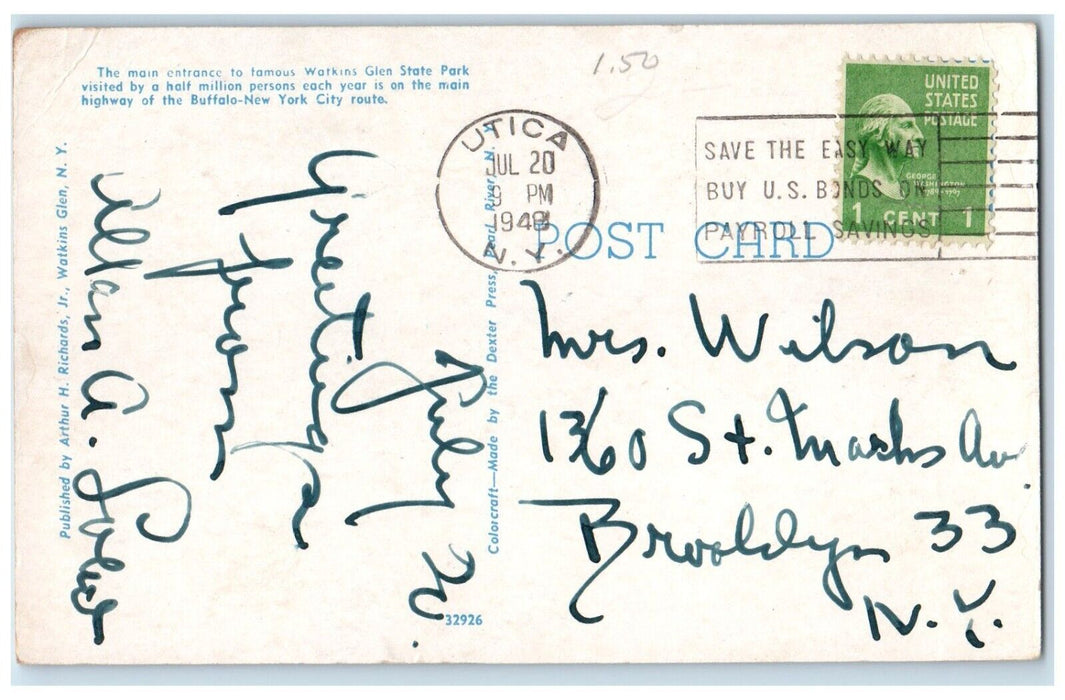 The main entrance to famous Watkins Glen State Park
visited by a half million persons each year is on the main
highway of the Buffalo-New York City route.
1.50
UTICA
JUL 20
PM
1948
N. Y.
SAVE THE EASY WAY
BUY U.S. BONDS ON
PAYROLL SAVINGS
UNITED
STATES
POSTAGE
GEORGE
WASHINGTON
1789-1797
1 CENT 1
POST CARD
Published by Arthur H. Richards, Jr., Watkins Glen, N. Y.
Colorcraft—Made by the Dexter Press, Pearl River, N. Y.
32926
July 20.
Greetings
from
Allan A.
Mrs. Wilson
1360 St. Marks Av.
Brooklyn 33
N. Y.